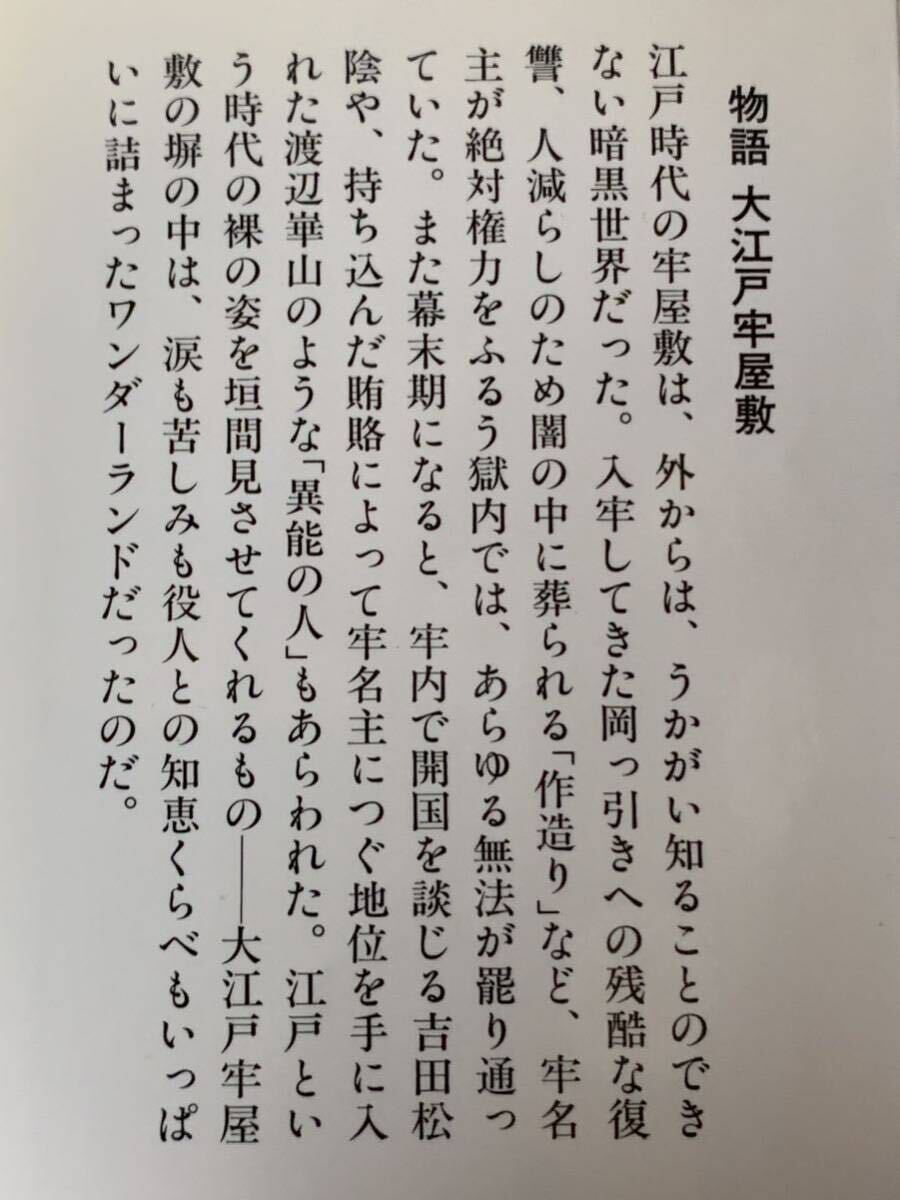 物語 大江戸牢屋敷
江戸時代の牢屋敷は、外からは、うかがい知ることのでき
ない暗黒世界だった。入牢してきた岡っ引きへの残酷な復
讐、人減らしのため闇の中に葬られる「作造り」など、牢名
主が絶対権力をふるう獄内では、あらゆる無法が罷り通っ
ていた。また幕末期になると、牢内で開国を談じる吉田松
陰や、持ち込んだ賄賂によって牢名主につぐ地位を手に入
れた渡辺崋山のような「異能の人」もあらわれた。江戸とい
う時代の裸の姿を垣間見させてくれるもの――大江戸牢屋
敷の塀の中は、涙も苦しみも役人との知恵くらべもいっぱ
いに詰まったワンダーランドだったのだ。